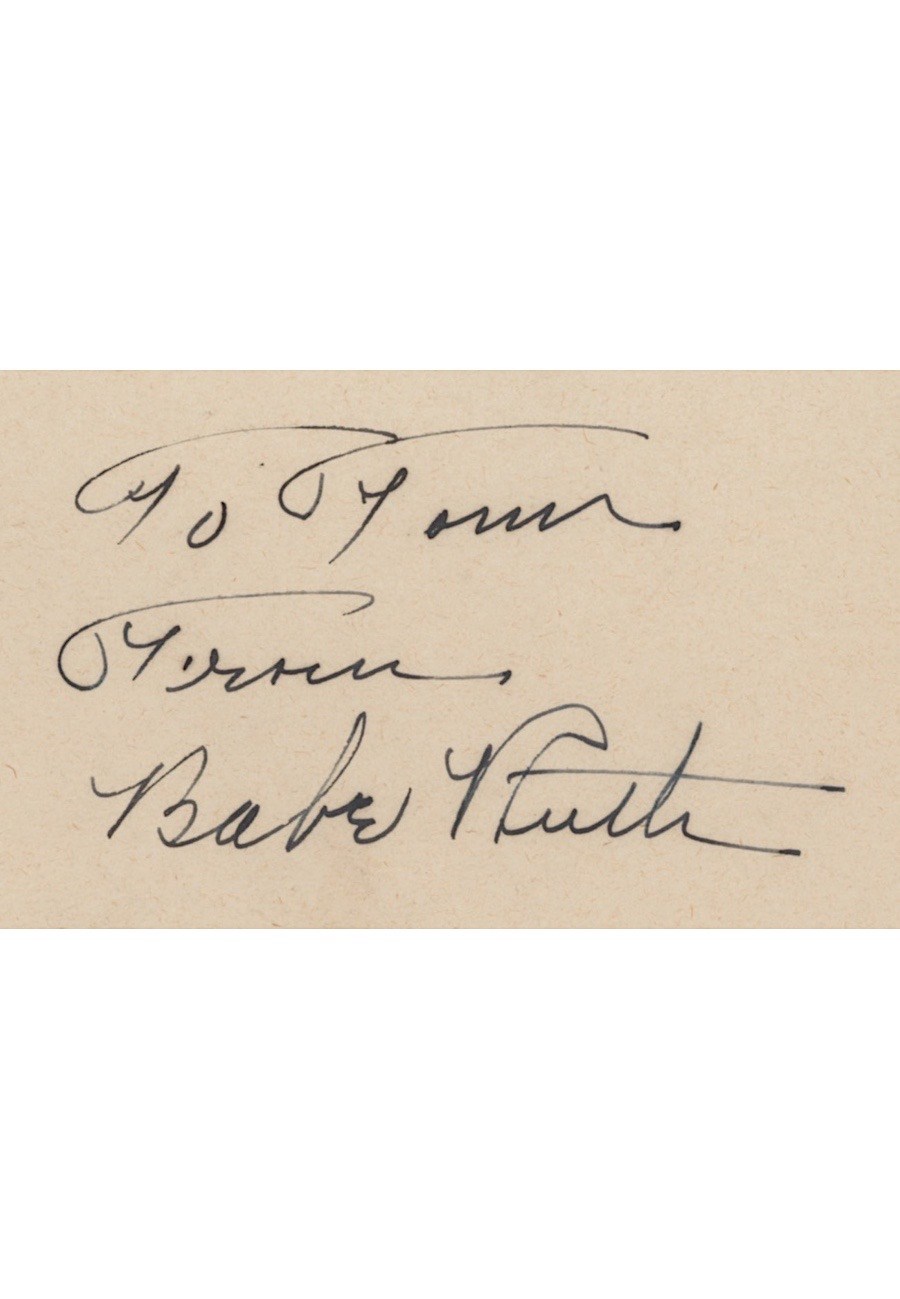 To Tom
From
Babe Ruth